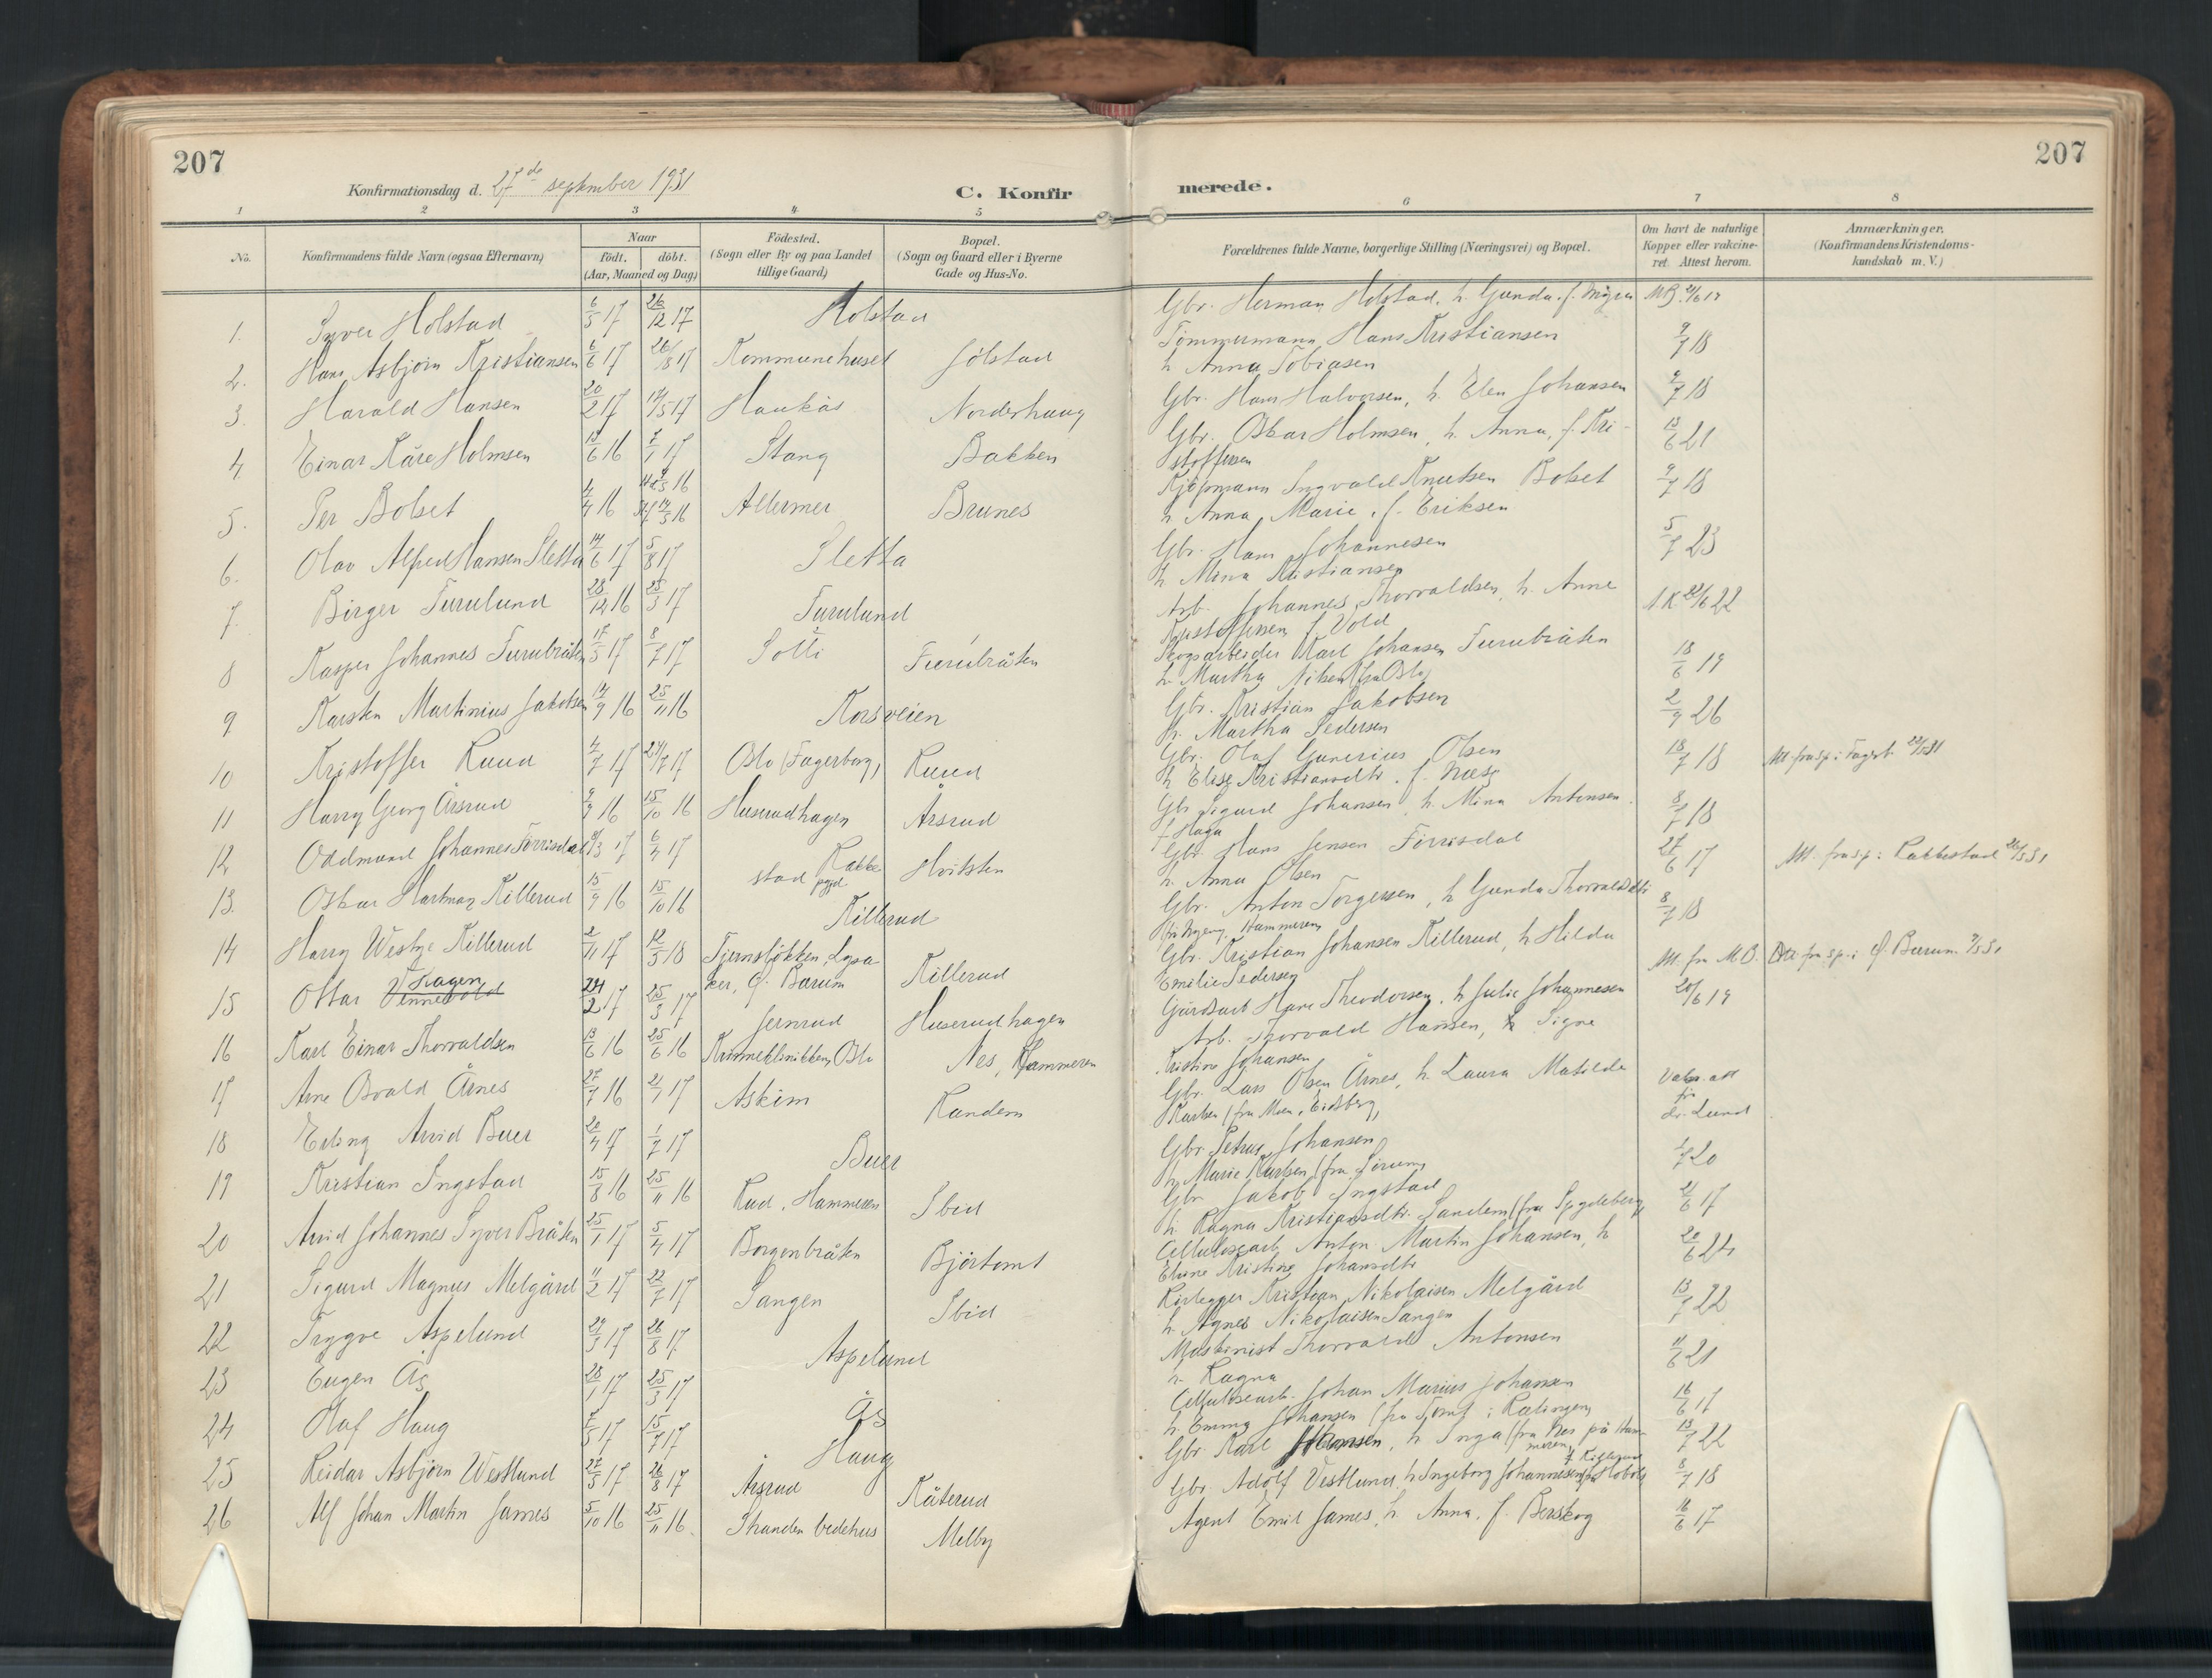 207
207
Konfirmationsdag d. 27de september 1931
C. Konfirmerede.
1 2 3 4 5 6 7 8
No. Konfirmandens fulde Navn (ogsaa Efternavn) Naar födt. döbt. (Aar, Maaned og Dag) Födested. (Sogn eller By og paa Landet tillige Gaard) Bopæl. (Sogn og Gaard eller i Byerne Gade og Hus-No. Forældrenes fulde Navne, borgerlige Stilling (Næringsvei) og Bopæl. Om havt de naturlige Kopper eller vakcineret. Attest herom. Anmærkninger. (Konfirmandens Kristendomskundskab m. V.)
1. Syver Holstad 6/5 17 26/12 17 Holstad Gbr. Herman Holstad, h. Gunda, f. MB.
2. Hans Asbjörn Kristiansen 6/6 17 26/8 17 Kommunehuset Sölstad Tömmermann Hans Kristiansen h Anna Tobiasen 9/7 18
3. Harald Hansen 20/2 17 17/5 17 Haukås Norderhaug Gbr. Hans Halvorsen, h. Elen Johansen 9/7 18
4. Einar Kåre Holmsen 6 16 7/1 17 Stang Bakken Gbr. Oskar Holmsen, h. Anna, f. Kristoffersen 13/6 21
5. Per Bolset 4/4 16 16 16 Allermer Brunes Kjöpmann Ingvald Knutsen Bolset h. Anna Marie, f. Eriksen 9/7 18
6. Olav Alfred Hansen Sletta 14/6 17 5/8 17 Sletta Gbr. Hans Johannesen h Mina Kristiansen 5/7 23
7. Birger Furulund 28/12 16 25/3 17 Furulund Arb. Johannes Thorvaldsen, h. Anne Kristoffersen f Vold 22
8 Kasper Johannes Furubråten 17/5 17 8/7 17 Solli Furubråten Skogsarbeider Karl Johansen Furubråten h. Martha Nilsen (fra Oslo) 18/6 19
9 Karsten Martinius Jakobsen 14/9 16 25/11 16 Korsveien Gbr. Kristian Jakobsen h. Martha Pedersen 2/9 26
10 Kristoffer Ruud 4/7 17 17 Oslo (Fagerborg) Ruud Gbr. Olaf Gunerius Olsen h Elise Kristiansdtr. f. Næss 18/7 18 Att. fra sp. i Fagerb.
11 Harry Georg Årsrud 9/9 16 15/10 16 Huserudhagen Årsrud Gbr Sigurd Johansen, h. Mina Antonsen. f. Haga 8/7 18
12 Oddmund Johannes Förrisdal 17 6/4 17 Rakkestad pgd Hvitsten Gbr. Hans Jensen Förrisdal h. Anna Olsen 27/6 17 Att. fra sp. i Rakkestad
13. Oskar Hartman Killerud 15/9 16 15/10 16 Killerud Gbr. Anton Torgersen, h Gunda Thorvaldsdtr Hammeren 8/7 18
14 Harry Westye Killerud 2/11 17 12/5 18 Tjernsløkken, Lysaker, Ø. Bærum Killerud Gbr. Kristian Johansen Killerud, h Hilda Emilie Pedersen Att. fra M.B. Att fra sp. i Ø. Bærum
15 Ottar Vennevold Hagen 24/2 17 25/3 17 Jernrud Huserudhagen Gårdsarb Hans Theodorsen, h Julie Johannesen 20/6 19
16 Karl Einar Thorvaldsen 13/6 16 25/6 16 Kvinneklinikken, Oslo Nes, Hammeren Arb. Thorvald Hansen, h Signe Kristine Johansen
17 Arne Osvald Årnes 27/7 16 17 Askim Randem Gbr. Lars Olsen Årnes, h. Laura Matilde Karlsen (fra Moen, Eidsberg) Vaks. att fr dr. Lund
18 Erling Arvid Buer 20/4 17 1/7 17 Buer Gbr. Petrus Johansen h. Marie Karlsen (fra Sörum) 7 20
19 Kristian Ingstad 15/8 16 25/11 16 Rud, Hammeren Ibid Gbr Jakob Ingstad h. Ragna Kristiansdtr. Sandem (fra Spydeberg) 21/6 17
20 Arvid Johannes Syver Bråten 25/1 17 5/4 17 Borgenbråten Björtomt Cellulosearb Anton Martin Johansen, h Eline Kristine Johansdtr 20/6 24
21 Sigurd Magnus Melgård 11/2 17 22/7 17 Sangen Ibid Rörlegger Kristian Nikolaisen Melgård h. Agnes Nikolaisen Sangen 13/7 22
22 Trygve Aspelund 29/3 17 26/8 17 Aspelund Maskinist Thorvald Antonsen h. Ragna 11/6 21
23 Eugen Ås 28/1 17 25/3 17 Ås Cellulosearb. Johan Marius Johansen h. Emma Johansen (fra Tomt i Rælingen) 16/6 17
24 Olaf Haug 7/5 17 15/7 17 Haug Gbr. Karl Johansen, h Inga (fra Nes på Hammeren) 13/7 22
25 Reidar Asbjörn Westlund 27/5 17 26/8 17 Årsrud Råterud Gbr. Adolf Vestlund, h Ingeborg Johannesen f. Killerud fra Hobøl 8/7 18
26 Alf Johan Martin James 5/10 16 25/11 16. Skanden bedehus Melby Agent Emil James, h. Anna, f. Berskog 16/6 17